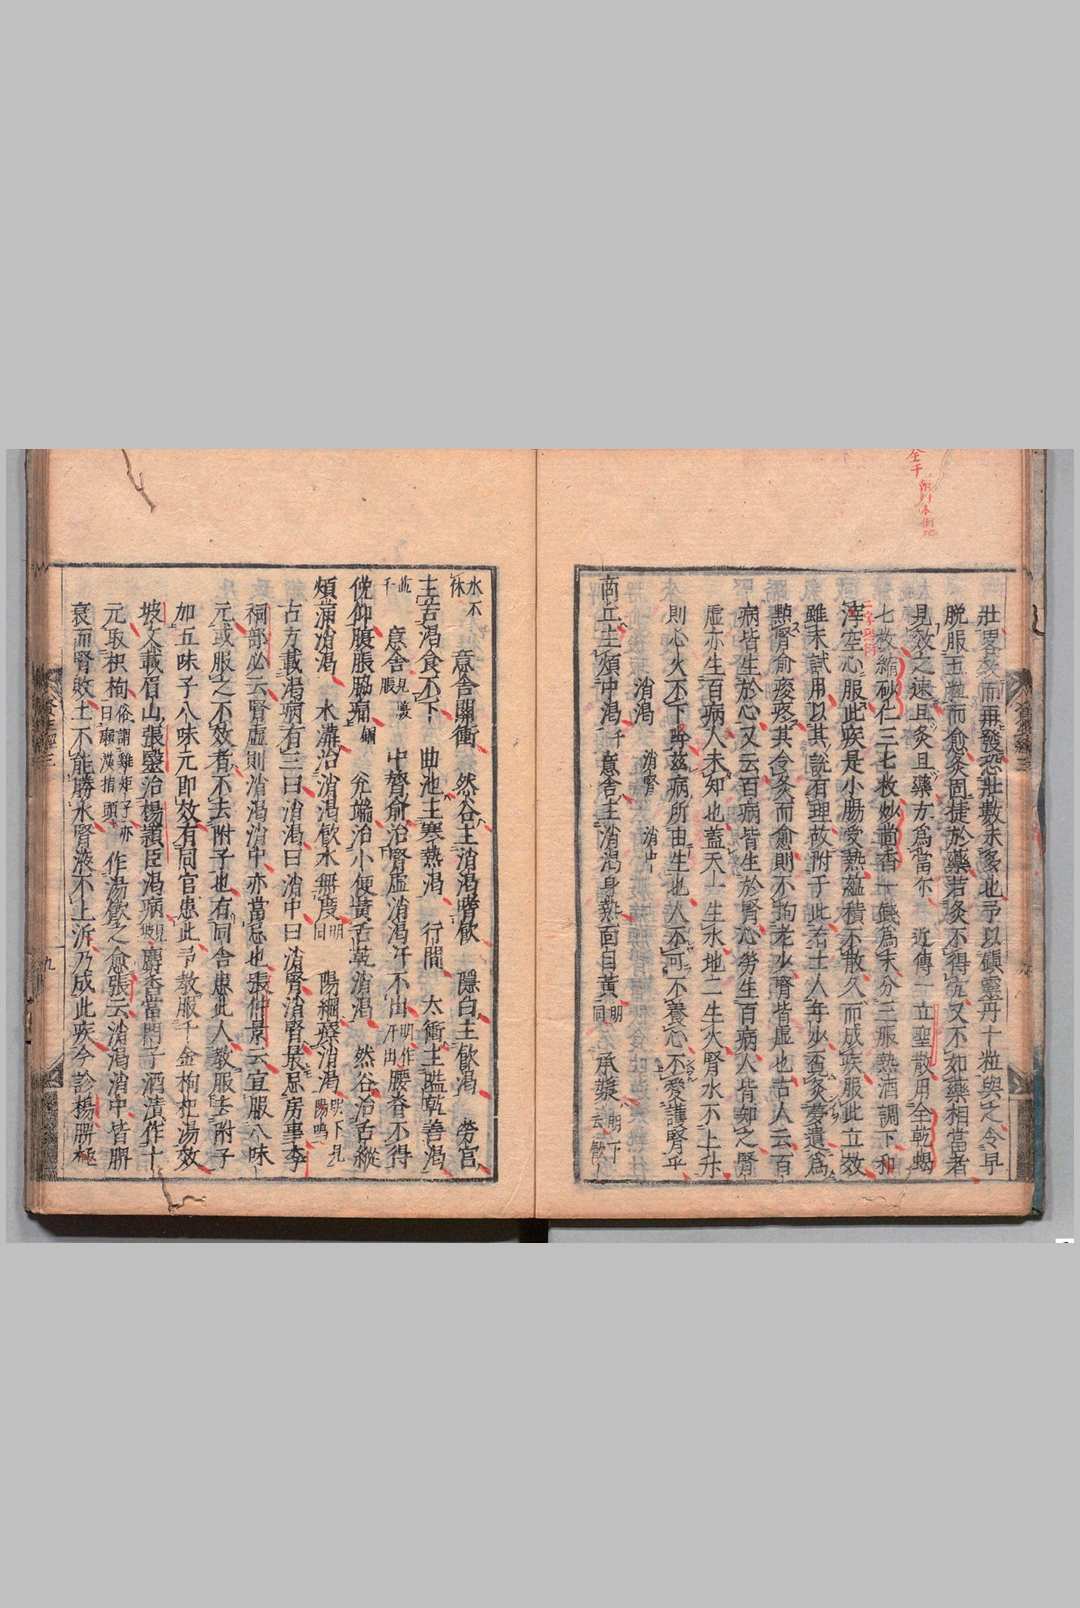 壯畧灸而再發恐壯數未多也予以鎮靈丹十粒與之令早
脫服五粒而愈灸固捷於藥若灸不得穴又不如藥相當者
見效之速且灸且藥方為當尔 近傳一立聖散用全乾蝎
七枚縮砂仁三七枚炒茴香一錢為末分三服熱酒調下和
滓空心服此疾是小腸受熱蘊積不散久而成疾服此立效
雖未試用以其說有理故附于此 有士人年少覔灸夢遺為
點腎俞痠疼其令灸而愈則不拘老少腎皆虛也古人云百
病皆生於心又云百病皆生於腎心勞生百病人皆知之腎
虛亦生百病人未知也蓋天一生水地二生火腎水不上升
則心火不下 茲病所由生也人不可不養心不愛護腎乎
消渴 消腎 消中
商丘主煩中渴千 意舍主消渴身熱面目黃明同 承漿 明下云飲
水不休 意舍關衝 然谷主消渴嗜飲 隱白主飲渴 勞宮
主苦渴食不下 曲池主寒熱渴 行間 太衝主嗌乾善渴
並千 意舍見腹脹 中膂俞治腎虛消渴汗不出明作汗出腰脊不得
俛仰腹脹脇痛銅 兊端治小便黃舌乾消渴 然谷治舌縱
煩滿消渴 水溝治消渴飲水無度明同 陽綱療消渴明下見陽鳴
古方載渴病有三曰消渴曰消中曰消腎消腎最忌房事李
祠部必云腎虛則消渴消中亦當忌也張仲景云宜服八味
元或服之不效者不去附子也有同舍患此人教服去附子
加五味子八味元即效有同官患此予教服千金枸杞湯效
坡文載眉山張醫治楊頴臣渴病見坡麝香當門子酒漬作十
元取枳枸俗謂雞矩子亦曰癩漢指頭作湯飲之愈張云消渴消中皆脾
衰而腎敗土不能勝水腎液不上泝乃成此疾今診楊脾極
九